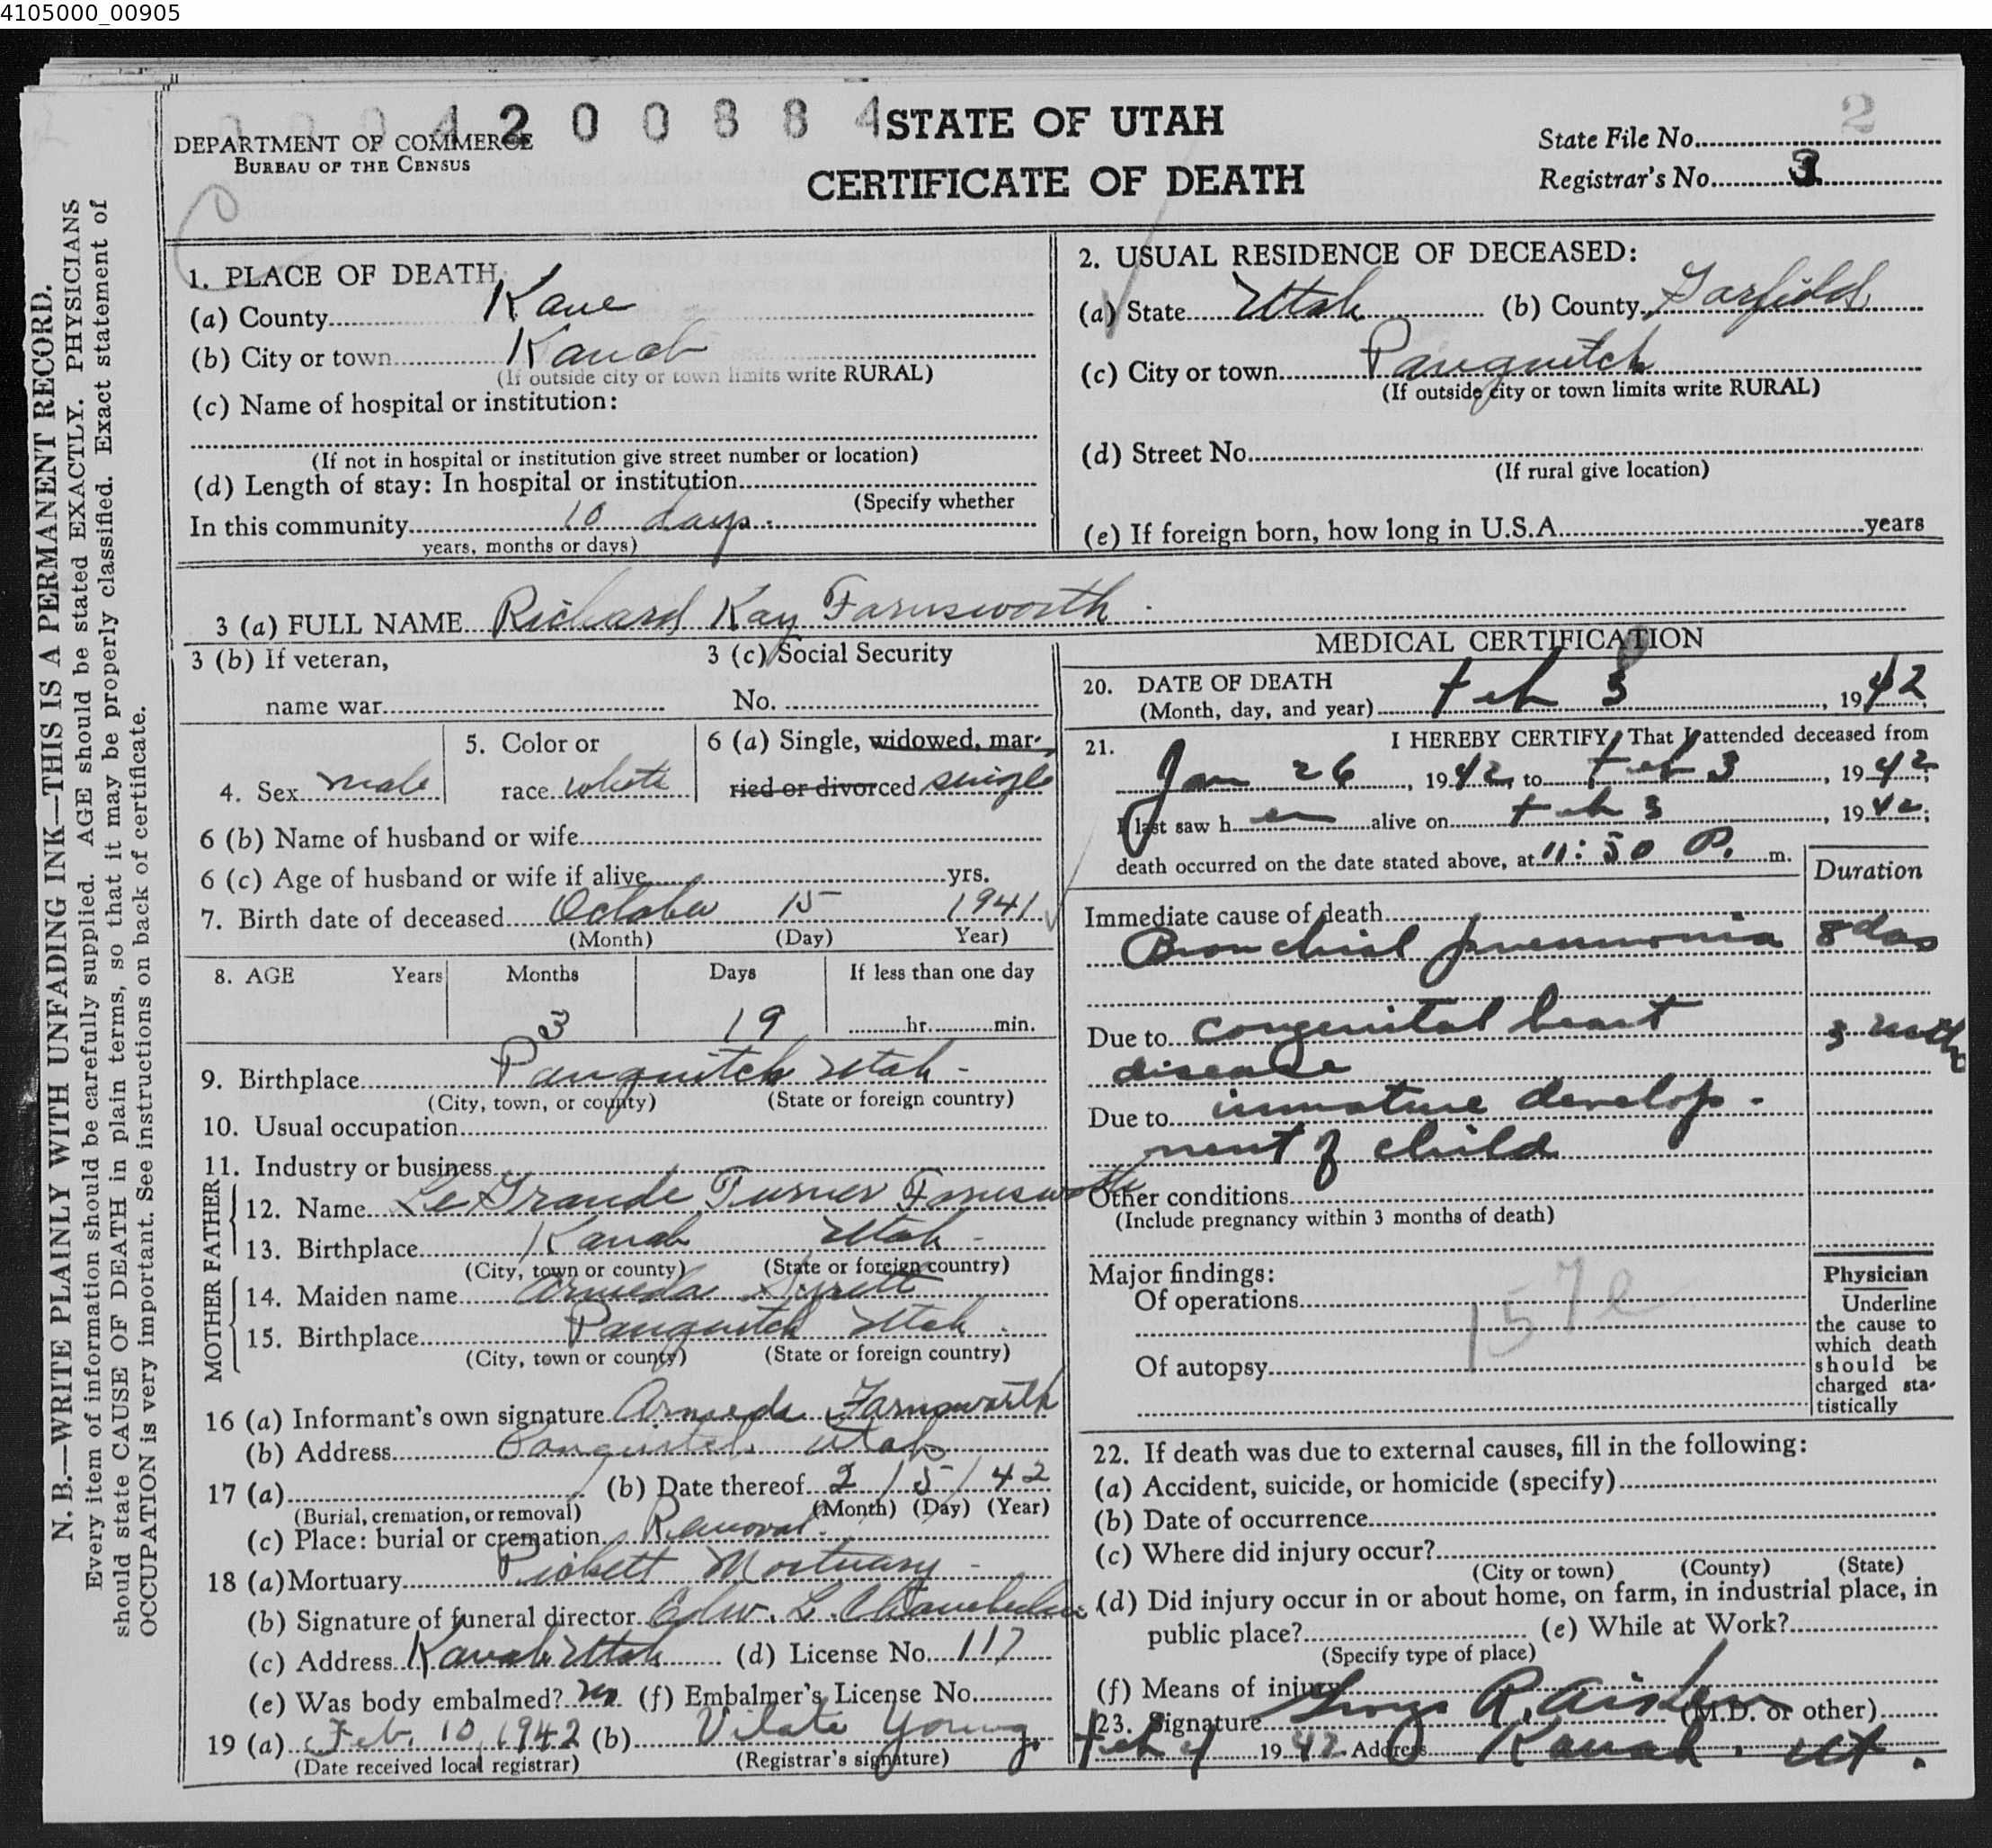 4105000_00905
0 0 0 4 2 0 0 8 8 4
STATE OF UTAH
CERTIFICATE OF DEATH
DEPARTMENT OF COMMERCE
BUREAU OF THE CENSUS
2
State File No.
Registrar's No. 3
N. B.—WRITE PLAINLY WITH UNFADING INK—THIS IS A PERMANENT RECORD.
Every item of information should be carefully supplied. AGE should be stated EXACTLY. PHYSICIANS
should state CAUSE OF DEATH in plain terms, so that it may be properly classified. Exact statement of
OCCUPATION is very important. See instructions on back of certificate.
1. PLACE OF DEATH:
(a) County Kane
(b) City or town Kanab
(If outside city or town limits write RURAL)
(c) Name of hospital or institution:
(If not in hospital or institution give street number or location)
(d) Length of stay: In hospital or institution
(Specify whether
In this community 10 days
years, months or days)
2. USUAL RESIDENCE OF DECEASED:
(a) State Utah (b) County Garfield
(c) City or town Panguitch
(If outside city or town limits write RURAL)
(d) Street No.
(If rural give location)
(e) If foreign born, how long in U.S.A. years
3 (a) FULL NAME Richard Kay Farnsworth
3 (b) If veteran,
name war
3 (c) Social Security
No.
4. Sex male
5. Color or
race white
6 (a) Single, widowed, mar-
ried or divorced single
6 (b) Name of husband or wife
6 (c) Age of husband or wife if alive yrs.
7. Birth date of deceased October 15 1941
(Month) (Day) Year)
8. AGE Years Months Days If less than one day
3 19 hr. min.
9. Birthplace Panguitch Utah
(City, town, or county) (State or foreign country)
10. Usual occupation
11. Industry or business
FATHER
12. Name LeGrande Turner Farnsworth
13. Birthplace Kanab Utah
(City, town or county) (State or foreign country)
MOTHER
14. Maiden name Armeda Syrett
15. Birthplace Panguitch Utah
(City, town or county) (State or foreign country)
16 (a) Informant's own signature Armeda Farnsworth
(b) Address Panguitch Utah
17 (a) (b) Date thereof 2/5/42
(Burial, cremation, or removal) (Month) (Day) (Year)
(c) Place: burial or cremation Removal
18 (a) Mortuary Pickett Mortuary
(b) Signature of funeral director Edw. L. Chamberlain
(c) Address Kanab Utah (d) License No. 117
(e) Was body embalmed? (f) Embalmer's License No.
19 (a) Feb. 10, 1942 (b) Vilate Young
(Date received local registrar) (Registrar's signature)
MEDICAL CERTIFICATION
20. DATE OF DEATH
(Month, day, and year) Feb 3, 1942
21. I HEREBY CERTIFY, That I attended deceased from
Jan 26, 1942, to Feb 3, 1942
I last saw h alive on Feb 3, 1942;
death occurred on the date stated above, at 11:50 P. m.
Duration
Immediate cause of death
Bronchial pneumonia 8 das
Due to congenital heart 3 mths
disease
Due to immature develop-
ment of child
Other conditions
(Include pregnancy within 3 months of death)
Major findings:
Of operations
157e
Of autopsy
Physician
Underline
the cause to
which death
should be
charged sta-
tistically
22. If death was due to external causes, fill in the following:
(a) Accident, suicide, or homicide (specify)
(b) Date of occurrence
(c) Where did injury occur?
(City or town) (County) (State)
(d) Did injury occur in or about home, on farm, in industrial place, in
public place? (e) While at Work?
(Specify type of place)
(f) Means of injury
23. Signature George R. Aiken (M.D. or other)
Feb 4 1942 Address Kanab, Ut.